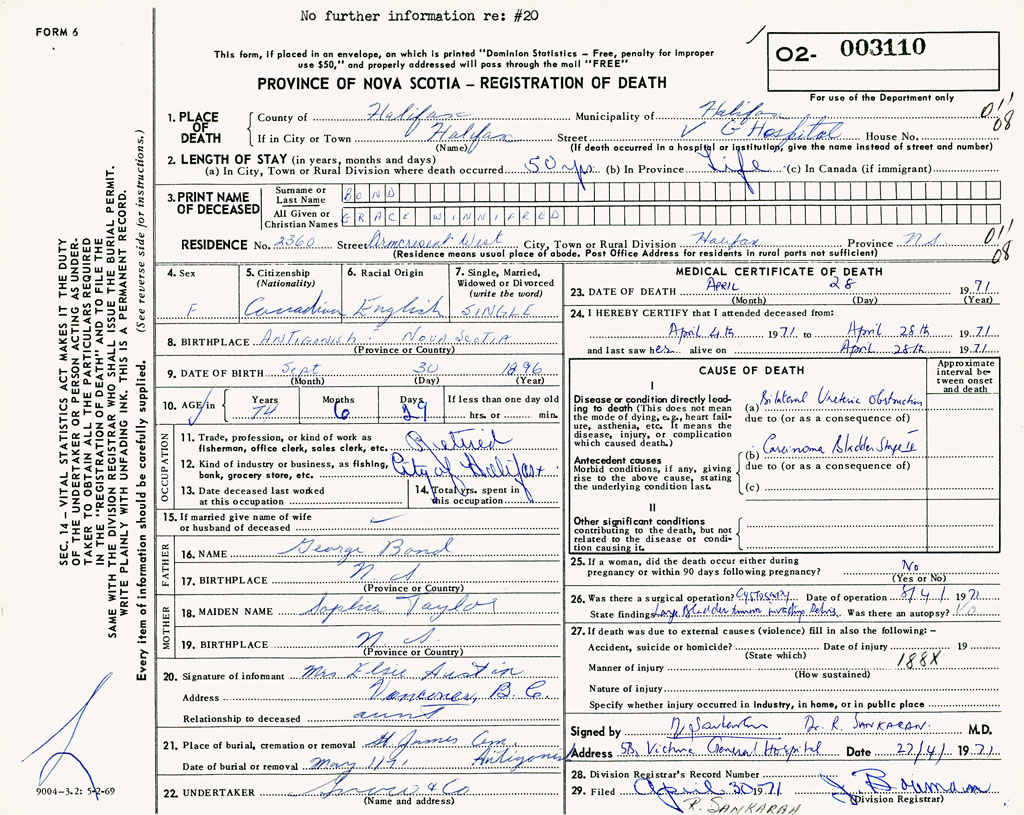 No further information re: #20
FORM 6
This form, if placed in an envelope, on which is printed "Dominion Statistics – Free, penalty for improper
use $50," and properly addressed will pass through the mail "FREE"
O2- 003110
For use of the Department only
PROVINCE OF NOVA SCOTIA – REGISTRATION OF DEATH
SEC. 14 – VITAL STATISTICS ACT MAKES IT THE DUTY
OF THE UNDERTAKER OR PERSON ACTING AS UNDER-
TAKER TO OBTAIN ALL THE PARTICULARS REQUIRED
IN THE "REGISTRATION OF DEATH" AND TO FILE THE
SAME WITH THE DIVISION REGISTRAR WHO SHALL ISSUE THE BURIAL PERMIT.
WRITE PLAINLY WITH UNFADING INK. THIS IS A PERMANENT RECORD.
Every item of information should be carefully supplied. (See reverse side for instructions.)
1. PLACE OF DEATH
County of Halifax Municipality of Halifax
If in City or Town Halifax Street V G Hospital House No.
(Name) (If death occurred in a hospital or institution, give the name instead of street and number)
011
08
2. LENGTH OF STAY (in years, months and days)
(a) In City, Town or Rural Division where death occurred 50 yrs (b) In Province Life (c) In Canada (if immigrant)
3. PRINT NAME OF DECEASED
Surname or Last Name BOND
All Given or Christian Names GRACE WINNIFRED
RESIDENCE No. 2360 Street Armcresent West City, Town or Rural Division Halifax Province N S
(Residence means usual place of abode. Post Office Address for residents in rural parts not sufficient)
011
08
4. Sex F
5. Citizenship (Nationality) Canadian
6. Racial Origin English
7. Single, Married, Widowed or Divorced (write the word) SINGLE
8. BIRTHPLACE ANTIGONISH NOVA SCOTIA
(Province or Country)
9. DATE OF BIRTH Sept 30 1896
(Month) (Day) (Year)
10. AGE in Years 74 Months 6 Days 29 If less than one day old hrs. or min.
OCCUPATION
11. Trade, profession, or kind of work as fisherman, office clerk, sales clerk, etc. Retired
12. Kind of industry or business, as fishing, bank, grocery store, etc. City of Halifax
13. Date deceased last worked at this occupation
14. Total yrs. spent in this occupation
15. If married give name of wife or husband of deceased
FATHER
16. NAME George Bond
17. BIRTHPLACE N S
(Province or Country)
MOTHER
18. MAIDEN NAME Sophia Taylor
19. BIRTHPLACE N. S.
(Province or Country)
20. Signature of informant Mrs Elsie Austin
Address Vancouver, B. C.
Relationship to deceased aunt
21. Place of burial, cremation or removal St James Cem Antigonish
Date of burial or removal May 1/71
22. UNDERTAKER Snow & Co
(Name and address)
9004-3.2: 5-2-69
MEDICAL CERTIFICATE OF DEATH
23. DATE OF DEATH APRIL 28 1971
(Month) (Day) (Year)
24. I HEREBY CERTIFY that I attended deceased from:
April 4th 1971 to April 28th 1971
and last saw her alive on April 28th 1971
CAUSE OF DEATH
Approximate interval between onset and death
I
Disease or condition directly leading to death (This does not mean the mode of dying, e.g., heart failure, asthenia, etc. It means the disease, injury, or complication which caused death.)
(a) Bilateral Ureteric Obstruction
due to (or as a consequence of)
Antecedent causes
Morbid conditions, if any, giving rise to the above cause, stating the underlying condition last.
(b) Carcinoma Bladder Stage IV
due to (or as a consequence of)
(c)
II
Other significant conditions contributing to the death, but not related to the disease or condition causing it.
25. If a woman, did the death occur either during pregnancy or within 90 days following pregnancy? No
(Yes or No)
26. Was there a surgical operation? Cystoscopy Date of operation 8/4/ 1971
State findings Large Bladder tumor invading Pelvis Was there an autopsy? No
27. If death was due to external causes (violence) fill in also the following: –
Accident, suicide or homicide? Date of injury 19
(State which)
188X
Manner of injury
(How sustained)
Nature of injury
Specify whether injury occurred in industry, in home, or in public place
Signed by Dr. R. SANKARAN. M.D.
Address Victoria General Hospital Date 27/4/ 1971
28. Division Registrar's Record Number
29. Filed April 30 1971 J. Bowman
(Division Registrar)
R. SANKARAN